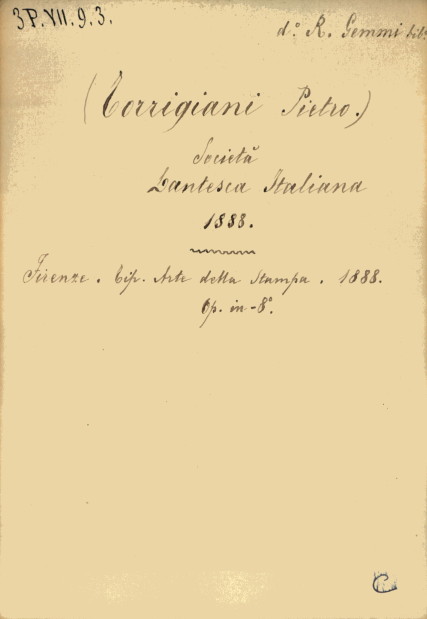 3P.VII.9.3.
d.º R. Gemmi bib:
(Torrigiani Pietro.)
Società
Dantesca Italiana
1888.
Firenze. Tip. Arte della Stampa. 1888.
Op. in-8º.
C